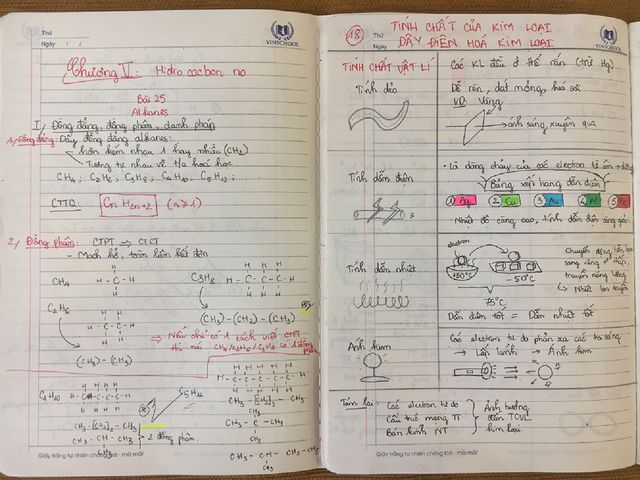 Thứ
Ngày / /
VINSCHOOL
Chương V: Hidro cacbon no
Bài 25
Alkanes
I, Đồng đẳng, đồng phân, danh pháp
1, Đồng đẳng: Dãy đồng đẳng alkanes:
- hơn kém nhau 1 hay nhiều (CH2)
- Tương tự nhau về t/c hoá học
CH4, C2H6, C3H8, C4H10, C5H12,
CTTQ: CnH2n+2 (n≥1)
2, Đồng phân: CTPT ⇒ CTCT
- Mạch hở, toàn liên kết đơn
CH4
C3H8
C2H6
(CH3)-(CH2)-(CH3)
⇒ Nếu chỉ có 1 cách viết CTCT
thì nói CH4/C2H6/C3H8 có 1 đồng phân
(CH3)-(CH3)
C4H10
C5H12
CH3-[CH2]2-CH3
CH3-[CH2]3-CH3
CH3-CH-CH3
CH3
→ 2 đồng phân
CH3
CH3-C-CH3
CH3
CH3-CH-CH2-CH3
CH3
Giấy trắng tự nhiên chống loá - mỏi mắt
18
Thứ
Ngày
TÍNH CHẤT CỦA KIM LOẠI
DÃY ĐIỆN HOÁ KIM LOẠI
VINSCHOOL
TÍNH CHẤT VẬT LÍ
Các KL đều ở thể rắn (trừ Hg)
Tính dẻo
Dễ rèn, dát mỏng, kéo sợi
VD: Vàng
→ ánh sáng xuyên qua
Tính dẫn điện
- Là dòng chảy của các electron từ âm → dương
Bảng xếp hạng dẫn điện
1 Ag 2 Cu 3 Au 4 Al 5 Fe
Nhiệt độ càng cao, tính dẫn điện càng giảm
Tính dẫn nhiệt
electron
150°C
-50°C
75°C
Chuyển động
truyền năng lượng
Dẫn điện tốt = Dẫn nhiệt tốt
Ánh kim
Các electron tự do phản xạ các tia sáng
→ Lấp lánh → Ánh kim
Tóm lại:
Các electron tự do
Cấu trúc mạng TT
Bán kính NT
Ảnh hưởng
đến TCVL
kim loại
Giấy trắng tự nhiên chống loá - mỏi mắt